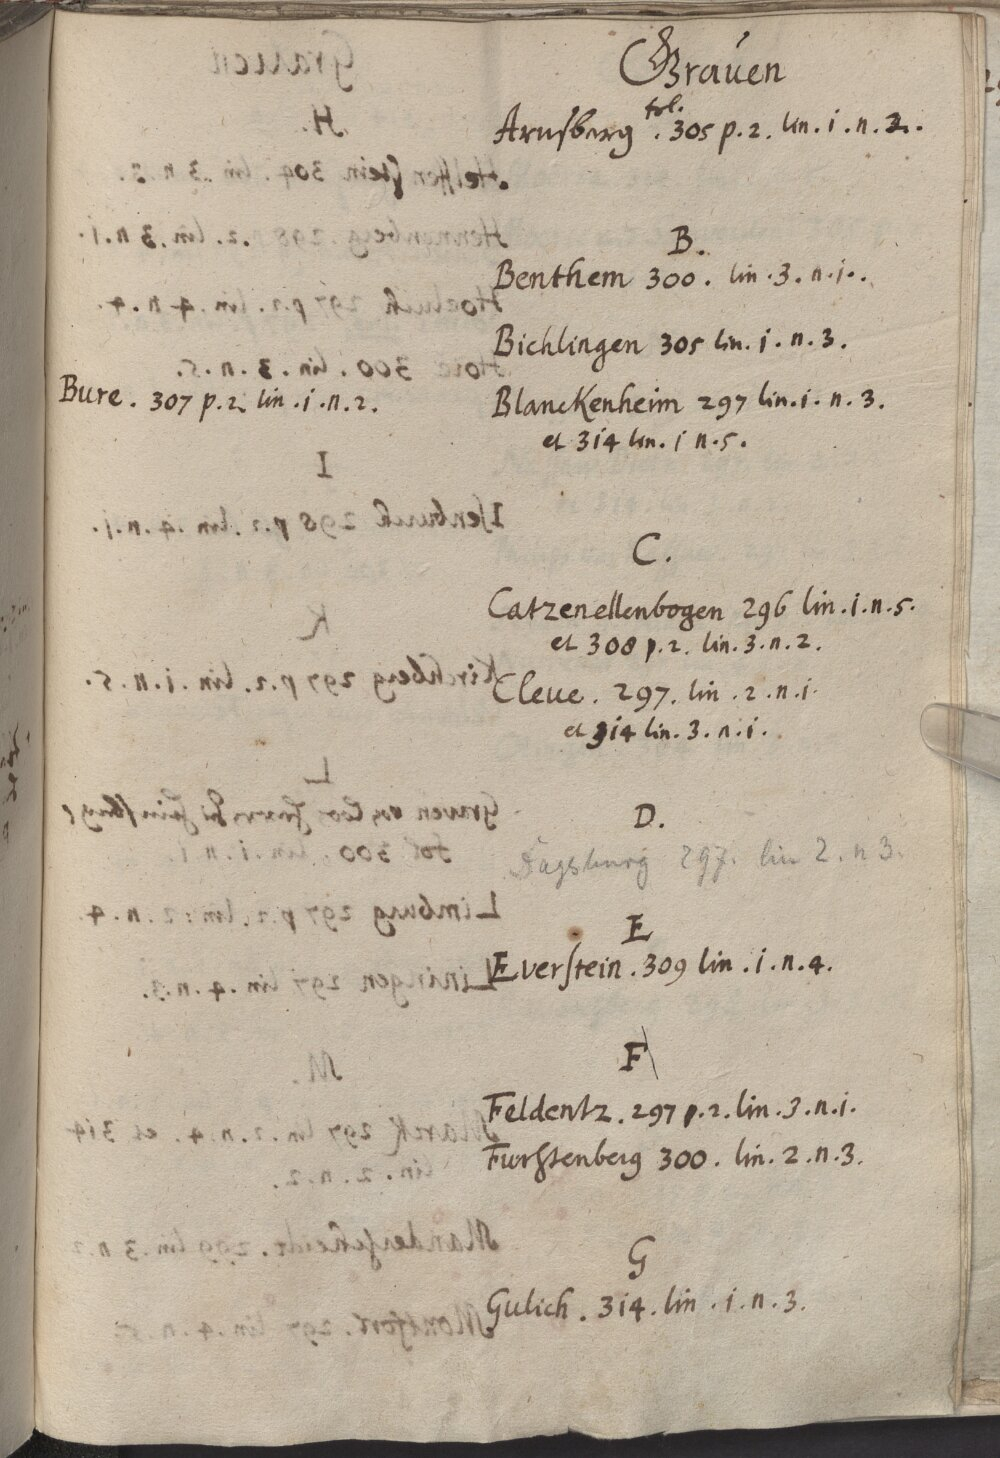 Grauen
Arnsberg fol. 305 p.2. lin. i. n. 2.
B.
Benthem 300. lin. 3. n. i.
Bichlingen 305 lin. i. n. 3.
Bure. 307 p.2 lin. i. n. 2.
BlancKenheim 297 lin. i. n. 3.
et 3i4 lin. i n. 5.
C.
Catzenellenbogen 296 lin. i. n. 5.
et 308 p. 2. lin. 3. n. 2.
Cleue. 297. lin. 2. n. i.
et 3i4 lin. 3. n. i.
D.
Dagsburg 297. lin 2. n 3.
E
Everstein. 309 lin. i. n. 4.
F
Feldentz. 297 p. 2. lin. 3. n. i.
Furstenberg 300. lin. 2. n. 3.
G
Gulich. 3i4. lin. i. n. 3.